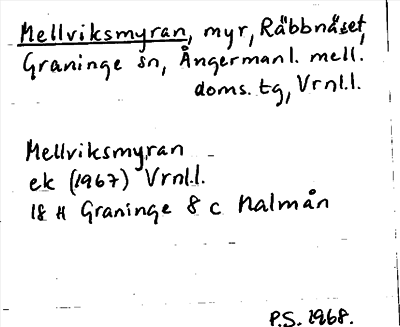 Mellviksmyran, myr, Räbbnäset,
Graninge sn, Ångermanl. mell.
doms. tg, Vrnl.l.
Mellviksmyran
ek (1967) Vrnl.l.
18 H Graninge 8 c Malmån
P.S. 1968.